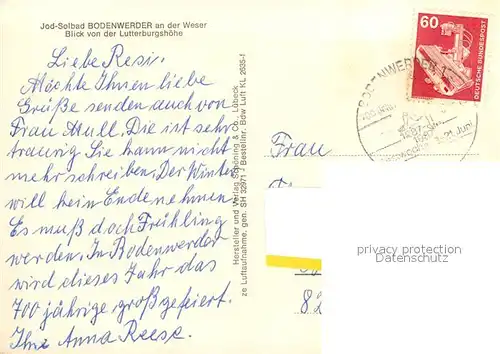 Jod-Solbad BODENWERDER an der Weser
Blick von der Lutterburgshöhe
Liebe Resi.
Möchte Ihnen liebe
Grüße senden auch von
Frau Mull. Die ist sehr
traurig. Sie kann nicht
mehr schreiben. Der Winter
will kein Ende nehmen
Es muß doch Frühling
werden. In Bodenwerder
wird dieses Jahr das
700 jährige groß gefeiert.
Ihre Anna Reese.
Hersteller und Verlag Schöning & Co., Lübeck
gen. SH 32971 / Bestellnr. Bdw Luft KL 2635-f
ze Luftaufnahme,
60
DEUTSCHE BUNDESPOST
BODENWERDER 1
1287-
21. Juni
Frau
privacy protection
Datenschutz
82